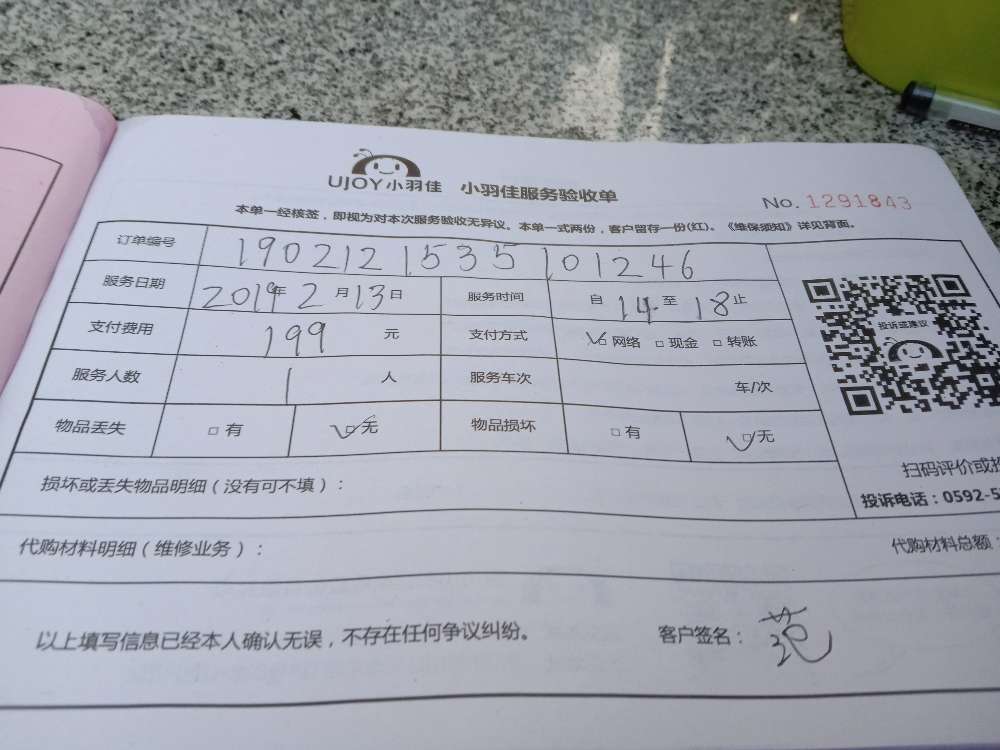 UJOY小羽佳 小羽佳服务验收单 No. 1291843
本单一经核签，即视为对本次服务验收无异议。本单一式两份，客户留存一份(红)。《维保须知》详见背面。
订单编号 190212153510 1246
服务日期 2019年2月13日 服务时间 自14至18止
支付费用 199元 支付方式 ☑网络 □现金 □转账
服务人数 1人 服务车次 车/次
物品丢失 □有 ☑无 物品损坏 □有 ☑无
投诉或建议
扫码评价或
损坏或丢失物品明细（没有可不填）：
投诉电话：0592-5
代购材料明细（维修业务）： 代购材料总额：
以上填写信息已经本人确认无误，不存在任何争议纠纷。 客户签名：